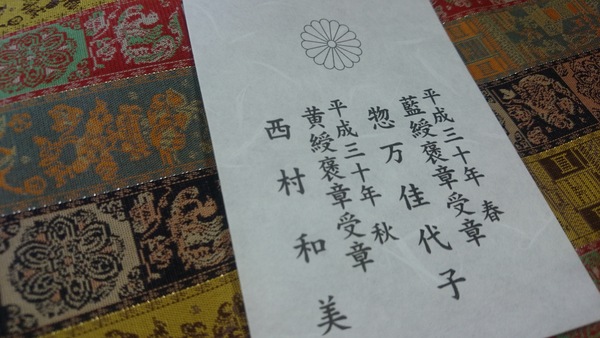 平成三十年 春
藍綬褒章受章
惣万佳代子
平成三十年 秋
黄綬褒章受章
西村和美